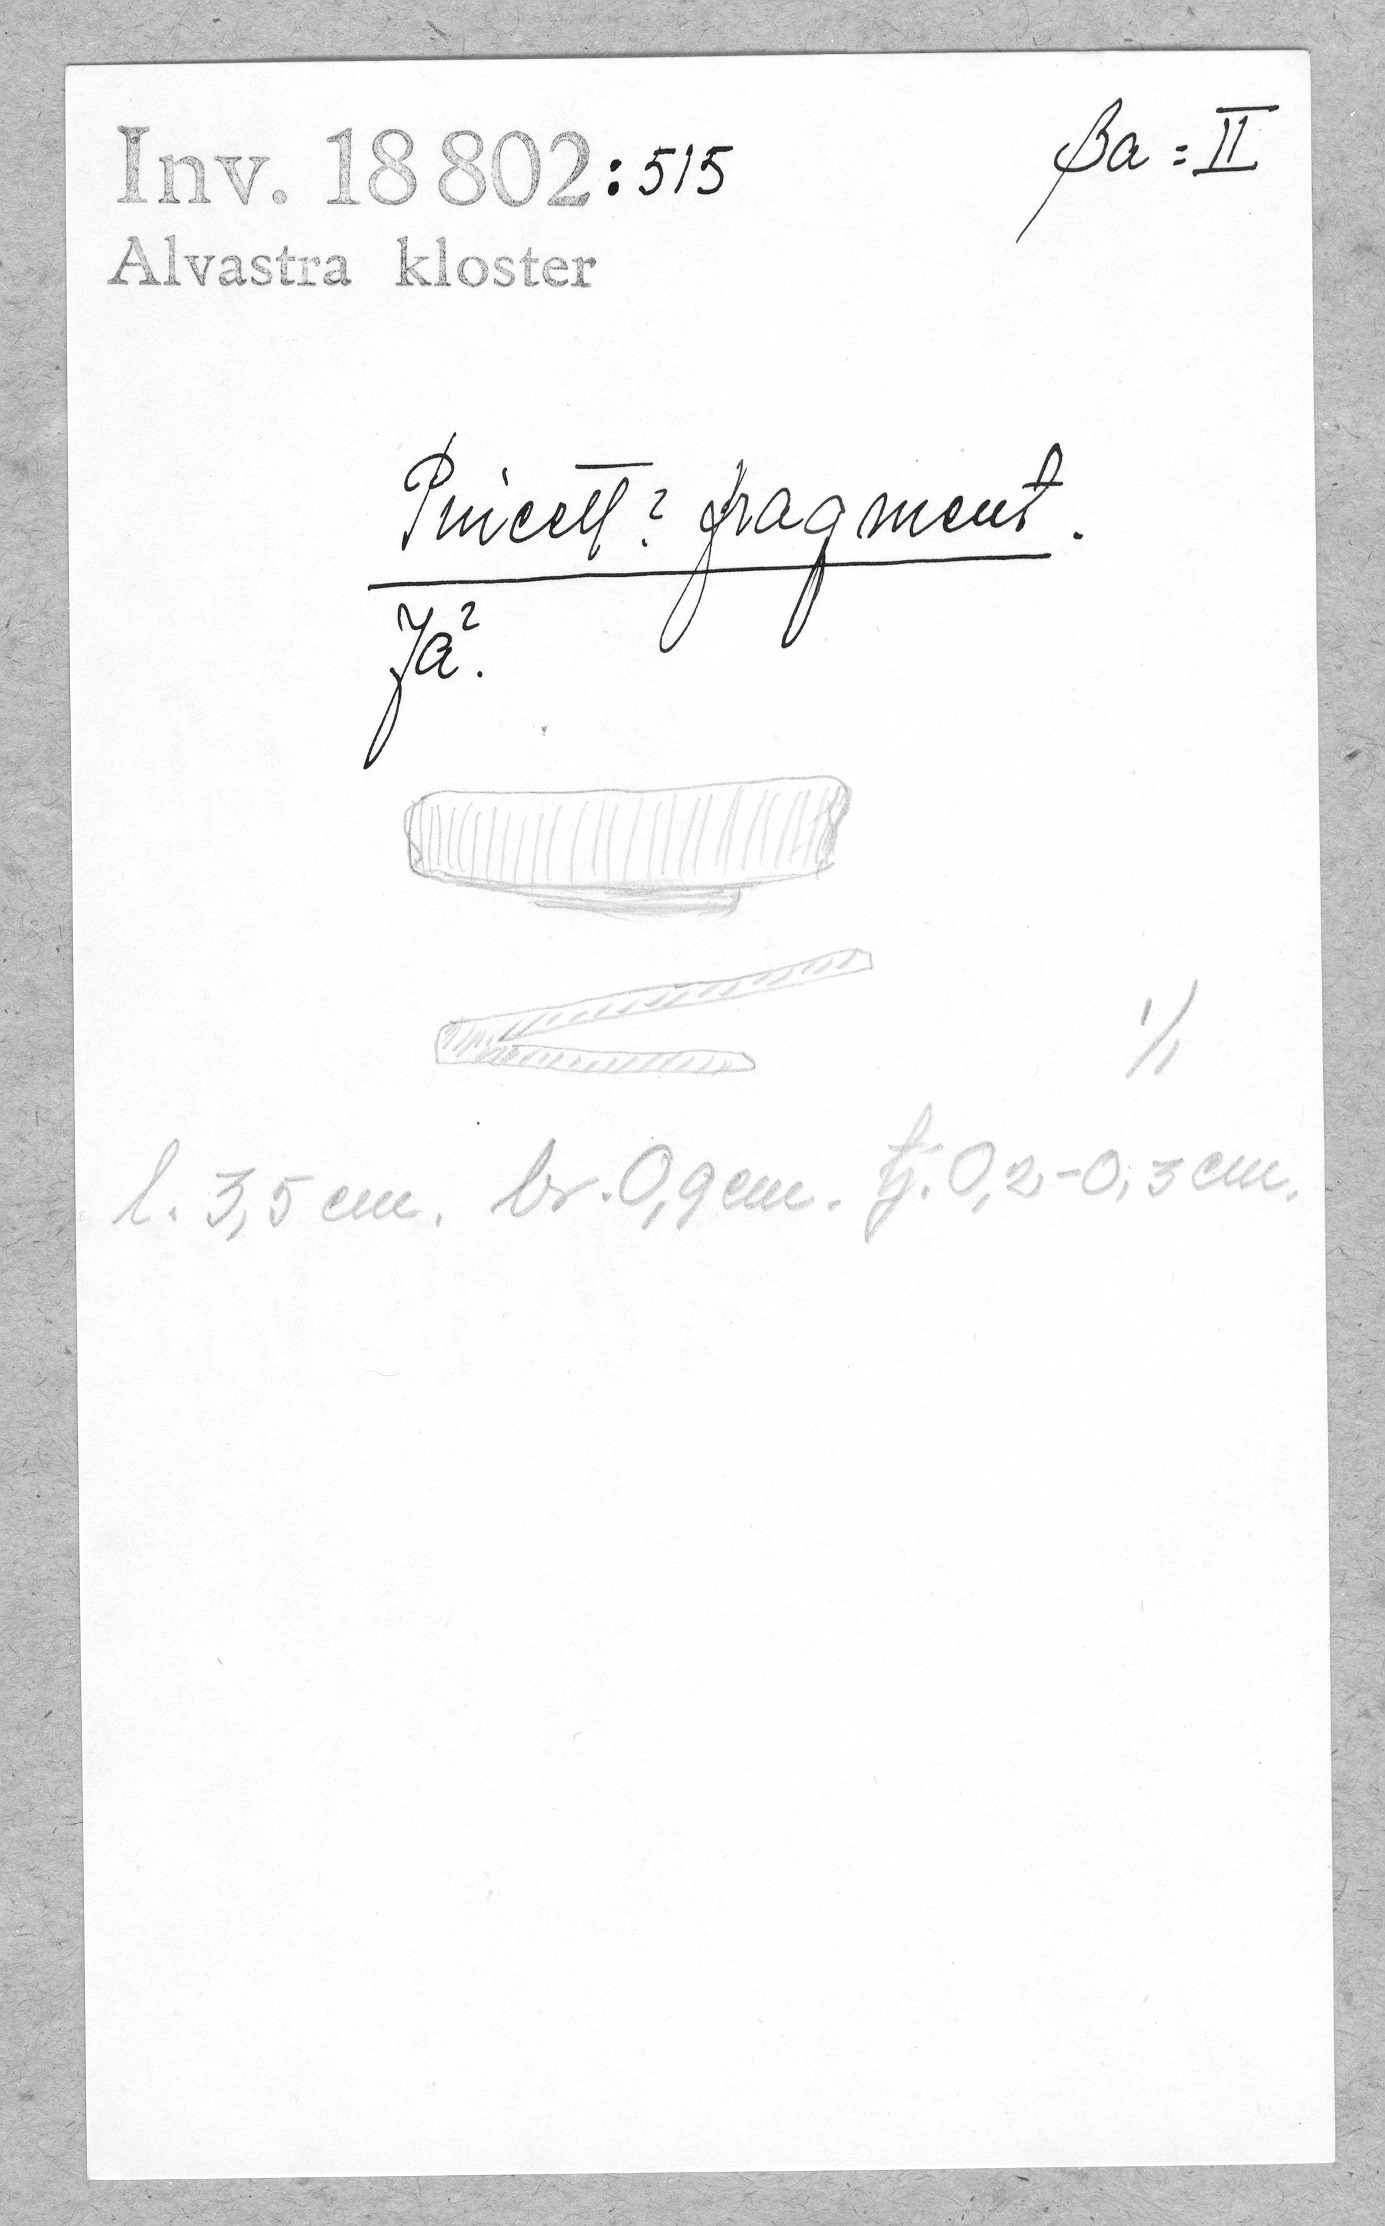 Inv. 18 802:515
βa = II
Alvastra kloster
Pincett? fragment.
Ja?
1/1
l. 3,5 cm. br. 0,9 cm. tj. 0,2-0,3 cm.